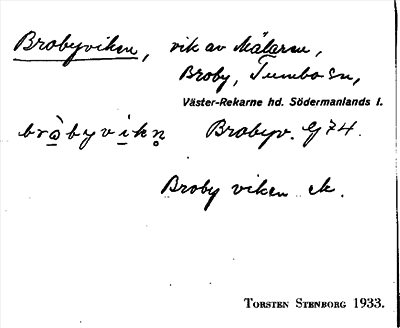 Brobyviken, vik av Mälaren,
Broby, Tumbo sn,
Väster-Rekarne hd. Södermanlands l.
bròbyvikn̥ Brobyv. GJ 74.
Broby viken ek.
TORSTEN STENBORG 1933.